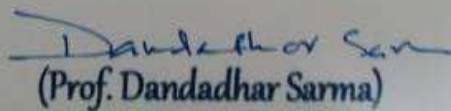 Dandadhar Sarm
(Prof. Dandadhar Sarma)